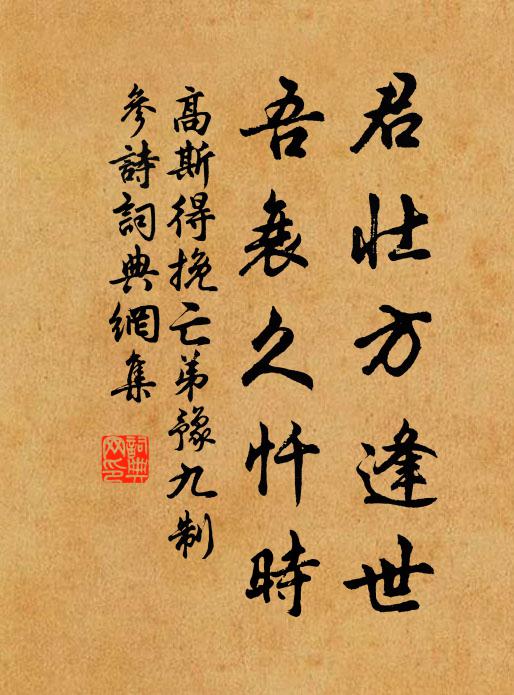 君壯方逢世
吾衰久忤時
高斯得挽亡弟豫九制
參詩詞典網集
詞典網印